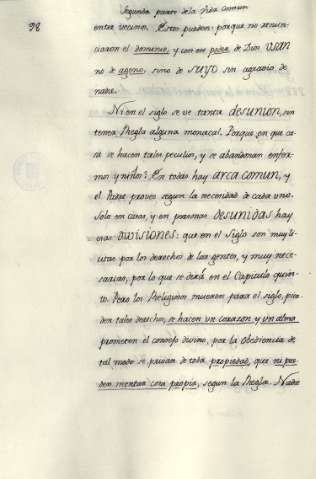 Segundo punto de la Vida comun
98
entre vecinos. Estos pueden: porque no renun-
ciaron el dominio, y con ese poder de Dios USAN
no de ageno, sino de SUYO sin agravio de
nadie.
Ni en el siglo se ve tanta desunion, sin
tener Regla alguna monacal. Porque, en que ca-
sa se hacen tales peculios, y se abandonan enfer-
mos y niños? En todas hay arca comun, y
el Padre provee segun la necesidad de cada uno.
Solo en casas, y en personas desunidas hay
esas divisiones: que en el Siglo son muy li-
citas por los derechos de las gentes, y muy nece-
sarias, por lo que se dirá en el Capitulo quin-
to. Pero los Religiosos mueren para el siglo, pier-
den tales derechos, se hacen un corazon y un alma
prometen el consejo divino, por la Obediencia de
tal modo se privan de toda propiedad, que ni pue-
den mentar cosa propia, segun la Regla. Nadie